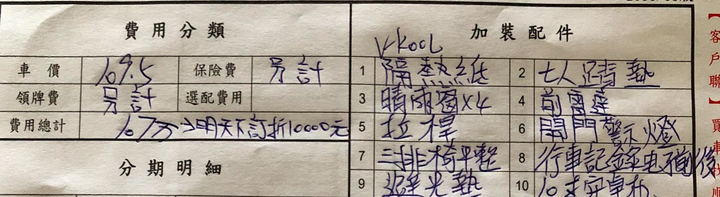 費用分類
加裝配件
車價 109.5 保險費 另計
領牌費 另計 選配費用
費用總計 107万 明天下訂折10000元
分期明細
V-kool
1 隔熱紙 2 七人踏墊
3 晴雨窗x4 4 前雷達
5 拉桿 6 開門警示燈
7 三排椅平整 8 行車記錄 後
9 避光墊 10
【客戶聯】